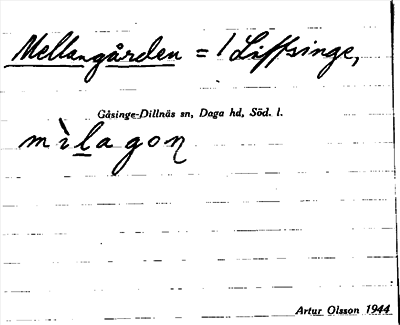 Mellangården = 1 Liffsinge,
Gåsinge-Dillnäs sn, Daga hd, Söd. l.
mìlagoŋ
Artur Olsson 1944